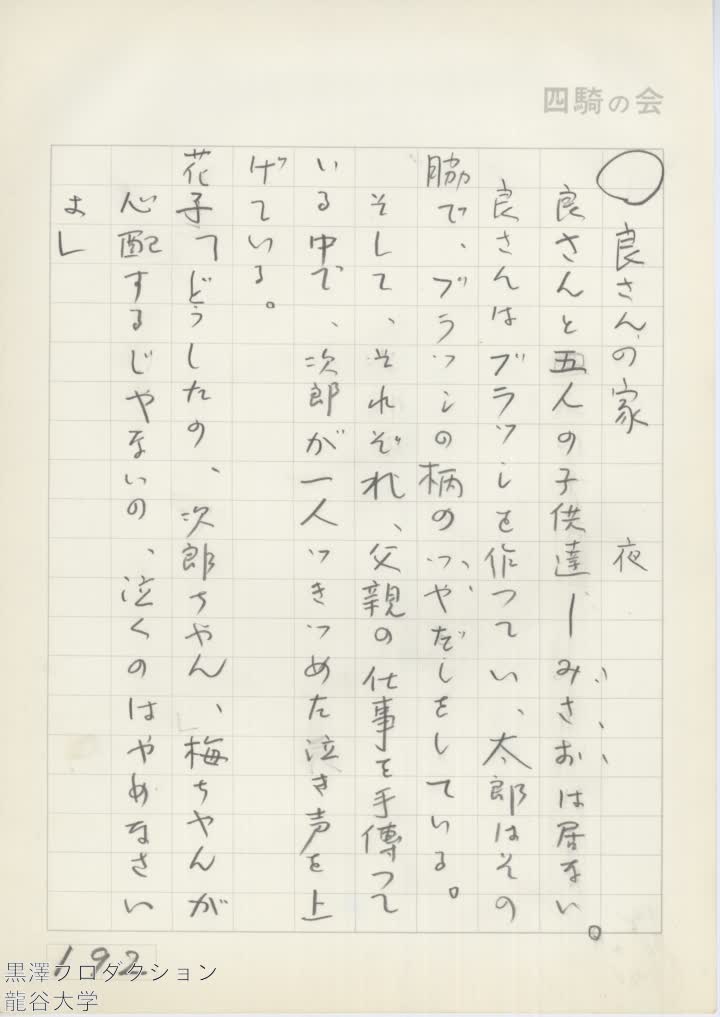 四騎の会
○良さんの家　　夜
良さんと五人の子供達ーみさおは居ない。
良さんはブラッシを作つてい、太郎はその
脇で、ブラッシの柄のつやだしをしている。
そして、それぞれ、父親の仕事を手傳つて
いる中で、次郎が一人つきつめた泣き声を上
げている。
花子「どうしたの、次郎ちやん、梅ちやんが
心配するじやないの、泣くのはやめなさい
よ」
192
黒澤プロダクション
龍谷大学